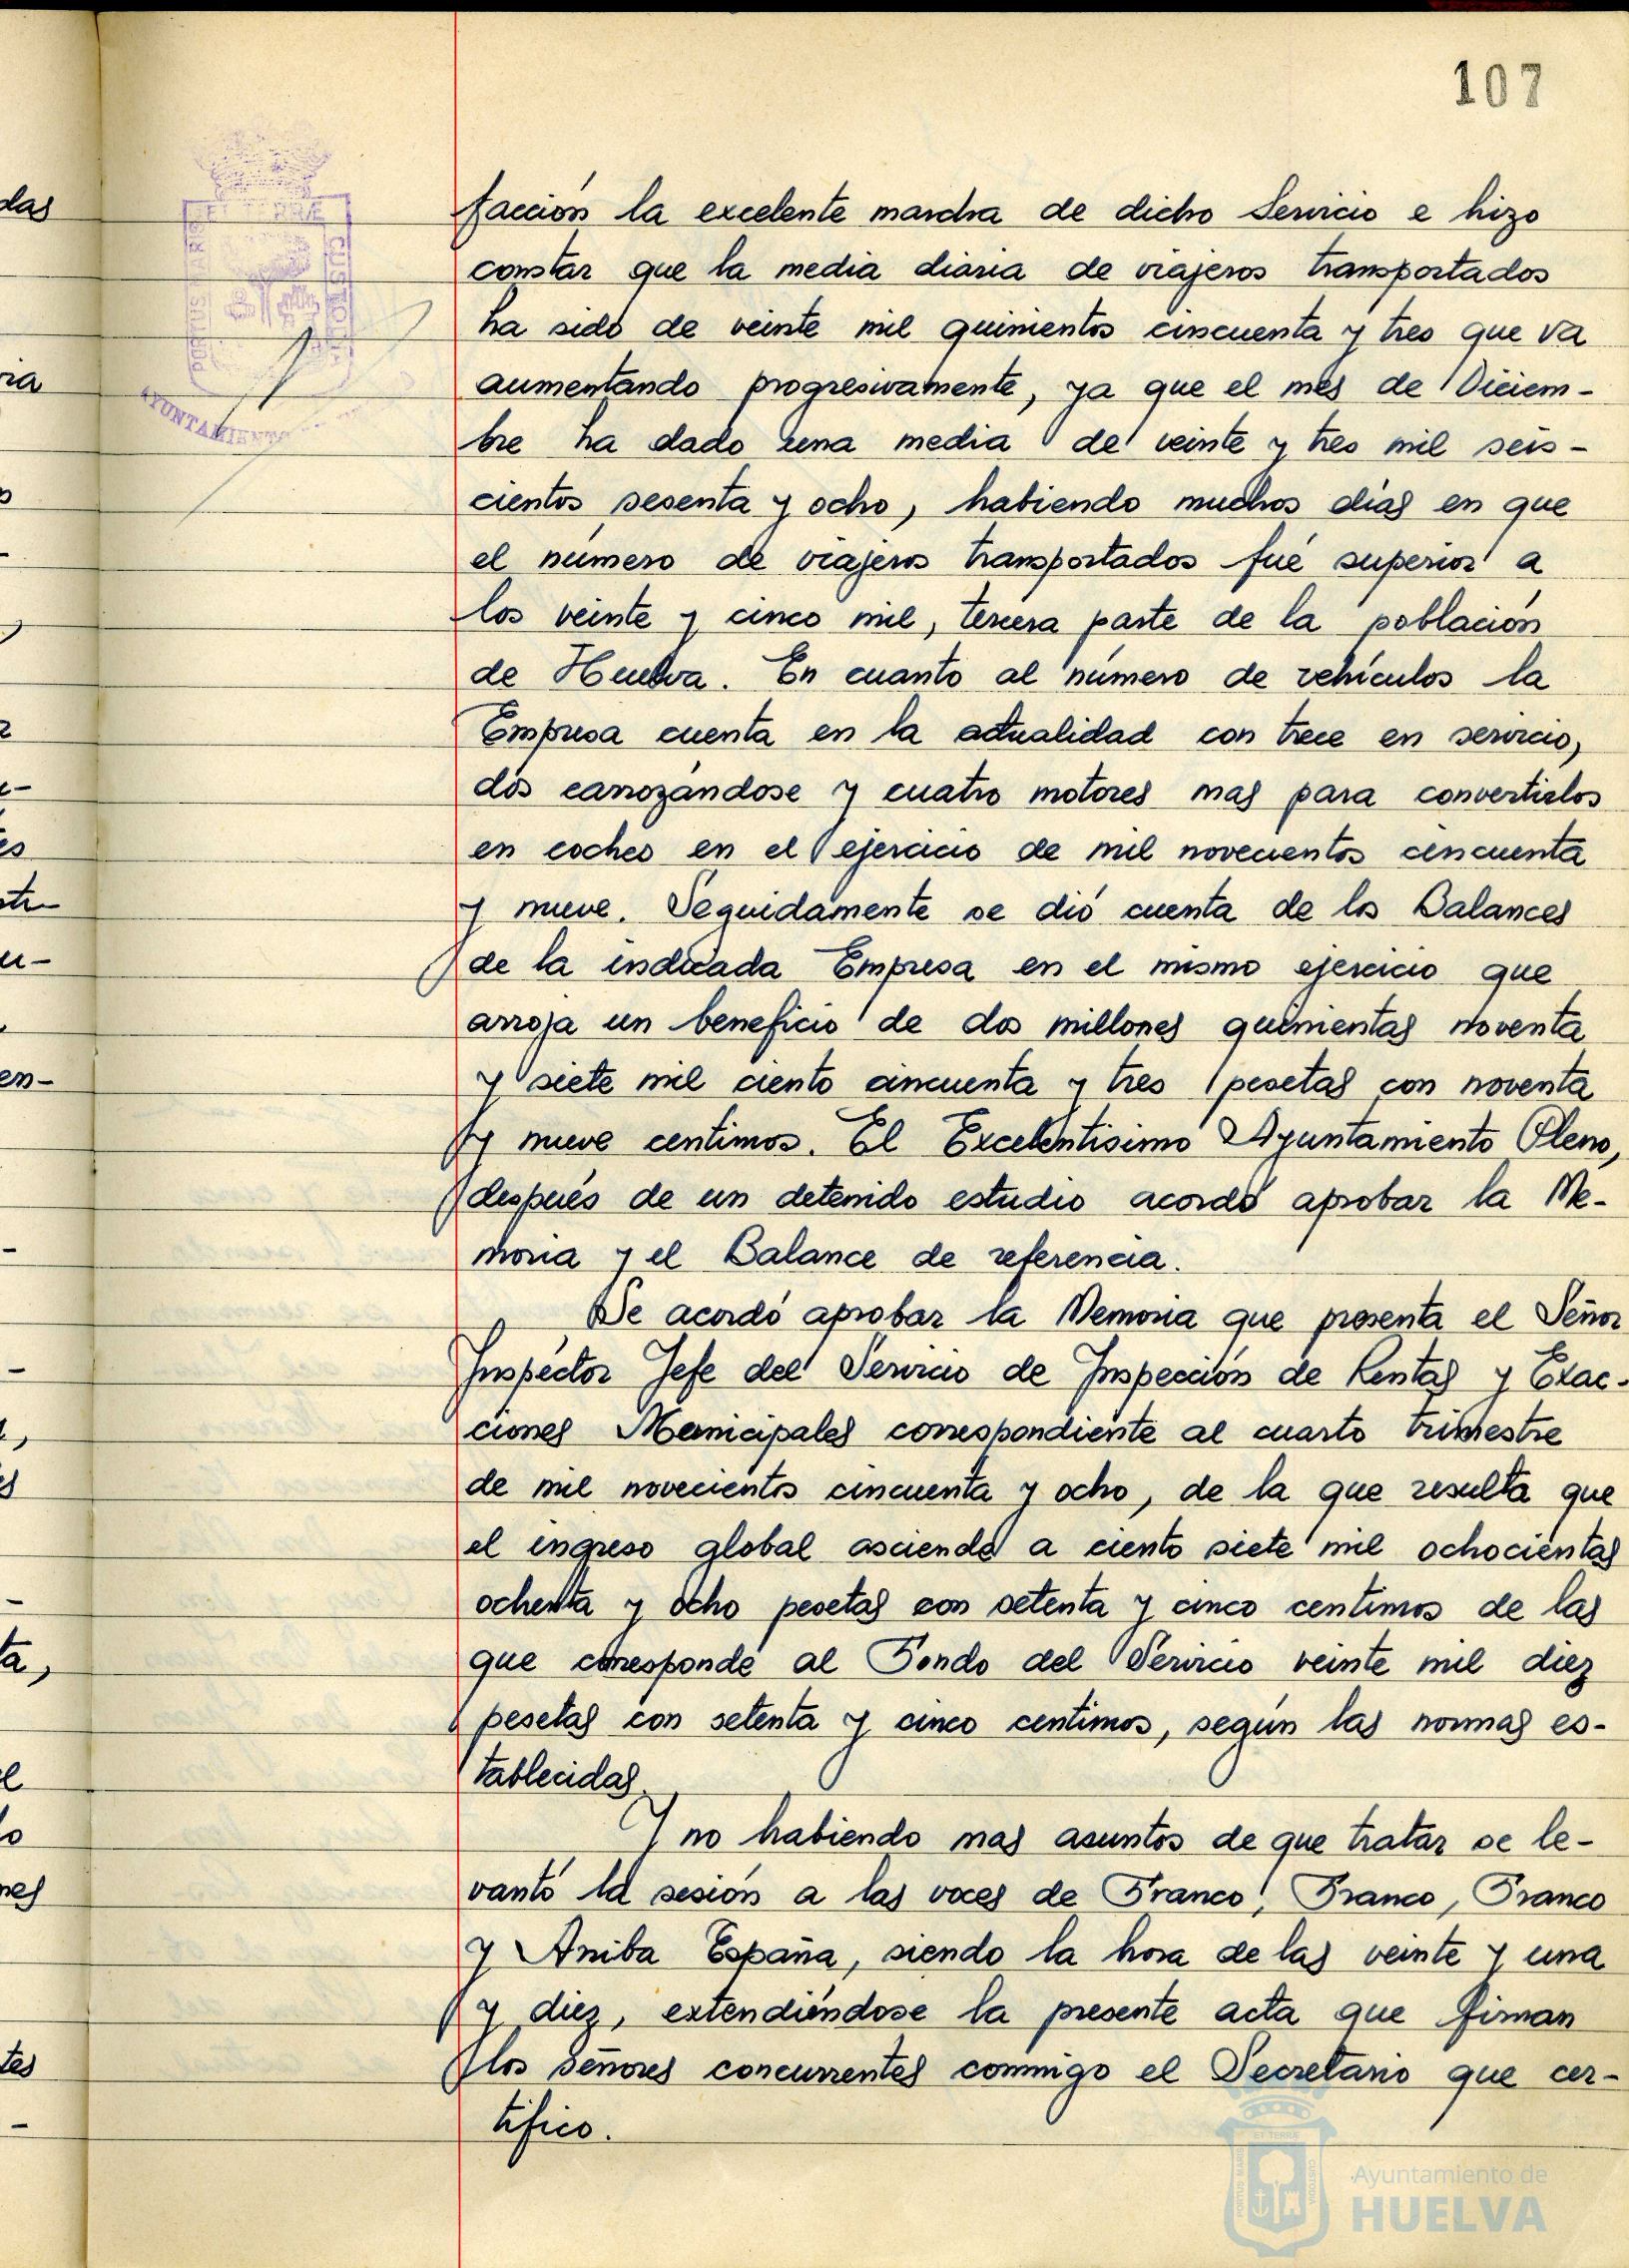 107
facción la excelente marcha de dicho Servicio e hizo
constar que la media diaria de viajeros transportados
ha sido de veinte mil quinientos cincuenta y tres que va
aumentando progresivamente, ya que el mes de Diciem-
bre ha dado una media de veinte y tres mil seis-
cientos sesenta y ocho, habiendo muchos días en que
el número de viajeros transportados fué superior a
los veinte y cinco mil, tercera parte de la población
de Huelva. En cuanto al número de vehículos la
Empresa cuenta en la actualidad con trece en servicio,
dós carrozándose y cuatro motores mas para convertirlos
en coches en el ejercicio de mil novecientos cincuenta
y nueve. Seguidamente se dió cuenta de los Balances
de la indicada Empresa en el mismo ejercicio que
arroja un beneficio de dos millones quinientas noventa
y siete mil ciento cincuenta y tres pesetas con noventa
y nueve centimos. El Excelentisimo Ayuntamiento Pleno,
después de un detenido estudio acordó aprobar la Me-
moria y el Balance de referencia.
Se acordó aprobar la Memoria que presenta el Señor
Inspector Jefe del Servicio de Inspección de Rentas y Exac-
ciones Municipales correspondiente al cuarto trimestre
de mil novecientos cincuenta y ocho, de la que resulta que
el ingreso global asciende a ciento siete mil ochocientas
ochenta y ocho pesetas con setenta y cinco centimos de las
que corresponde al Fondo del Servicio veinte mil diez
pesetas con setenta y cinco centimos, según las normas es-
tablecidas.
Y no habiendo mas asuntos de que tratar se le-
vantó la sesión a las voces de Franco, Franco, Franco
y Arriba España, siendo la hora de las veinte y una
y diez, extendiéndose la presente acta que firman
los señores concurrentes conmigo el Secretario que cer-
tifico.
ET TERRÆ
PORTUS MARIS
CUSTODIA
AYUNTAMIENTO
Ayuntamiento de
HUELVA